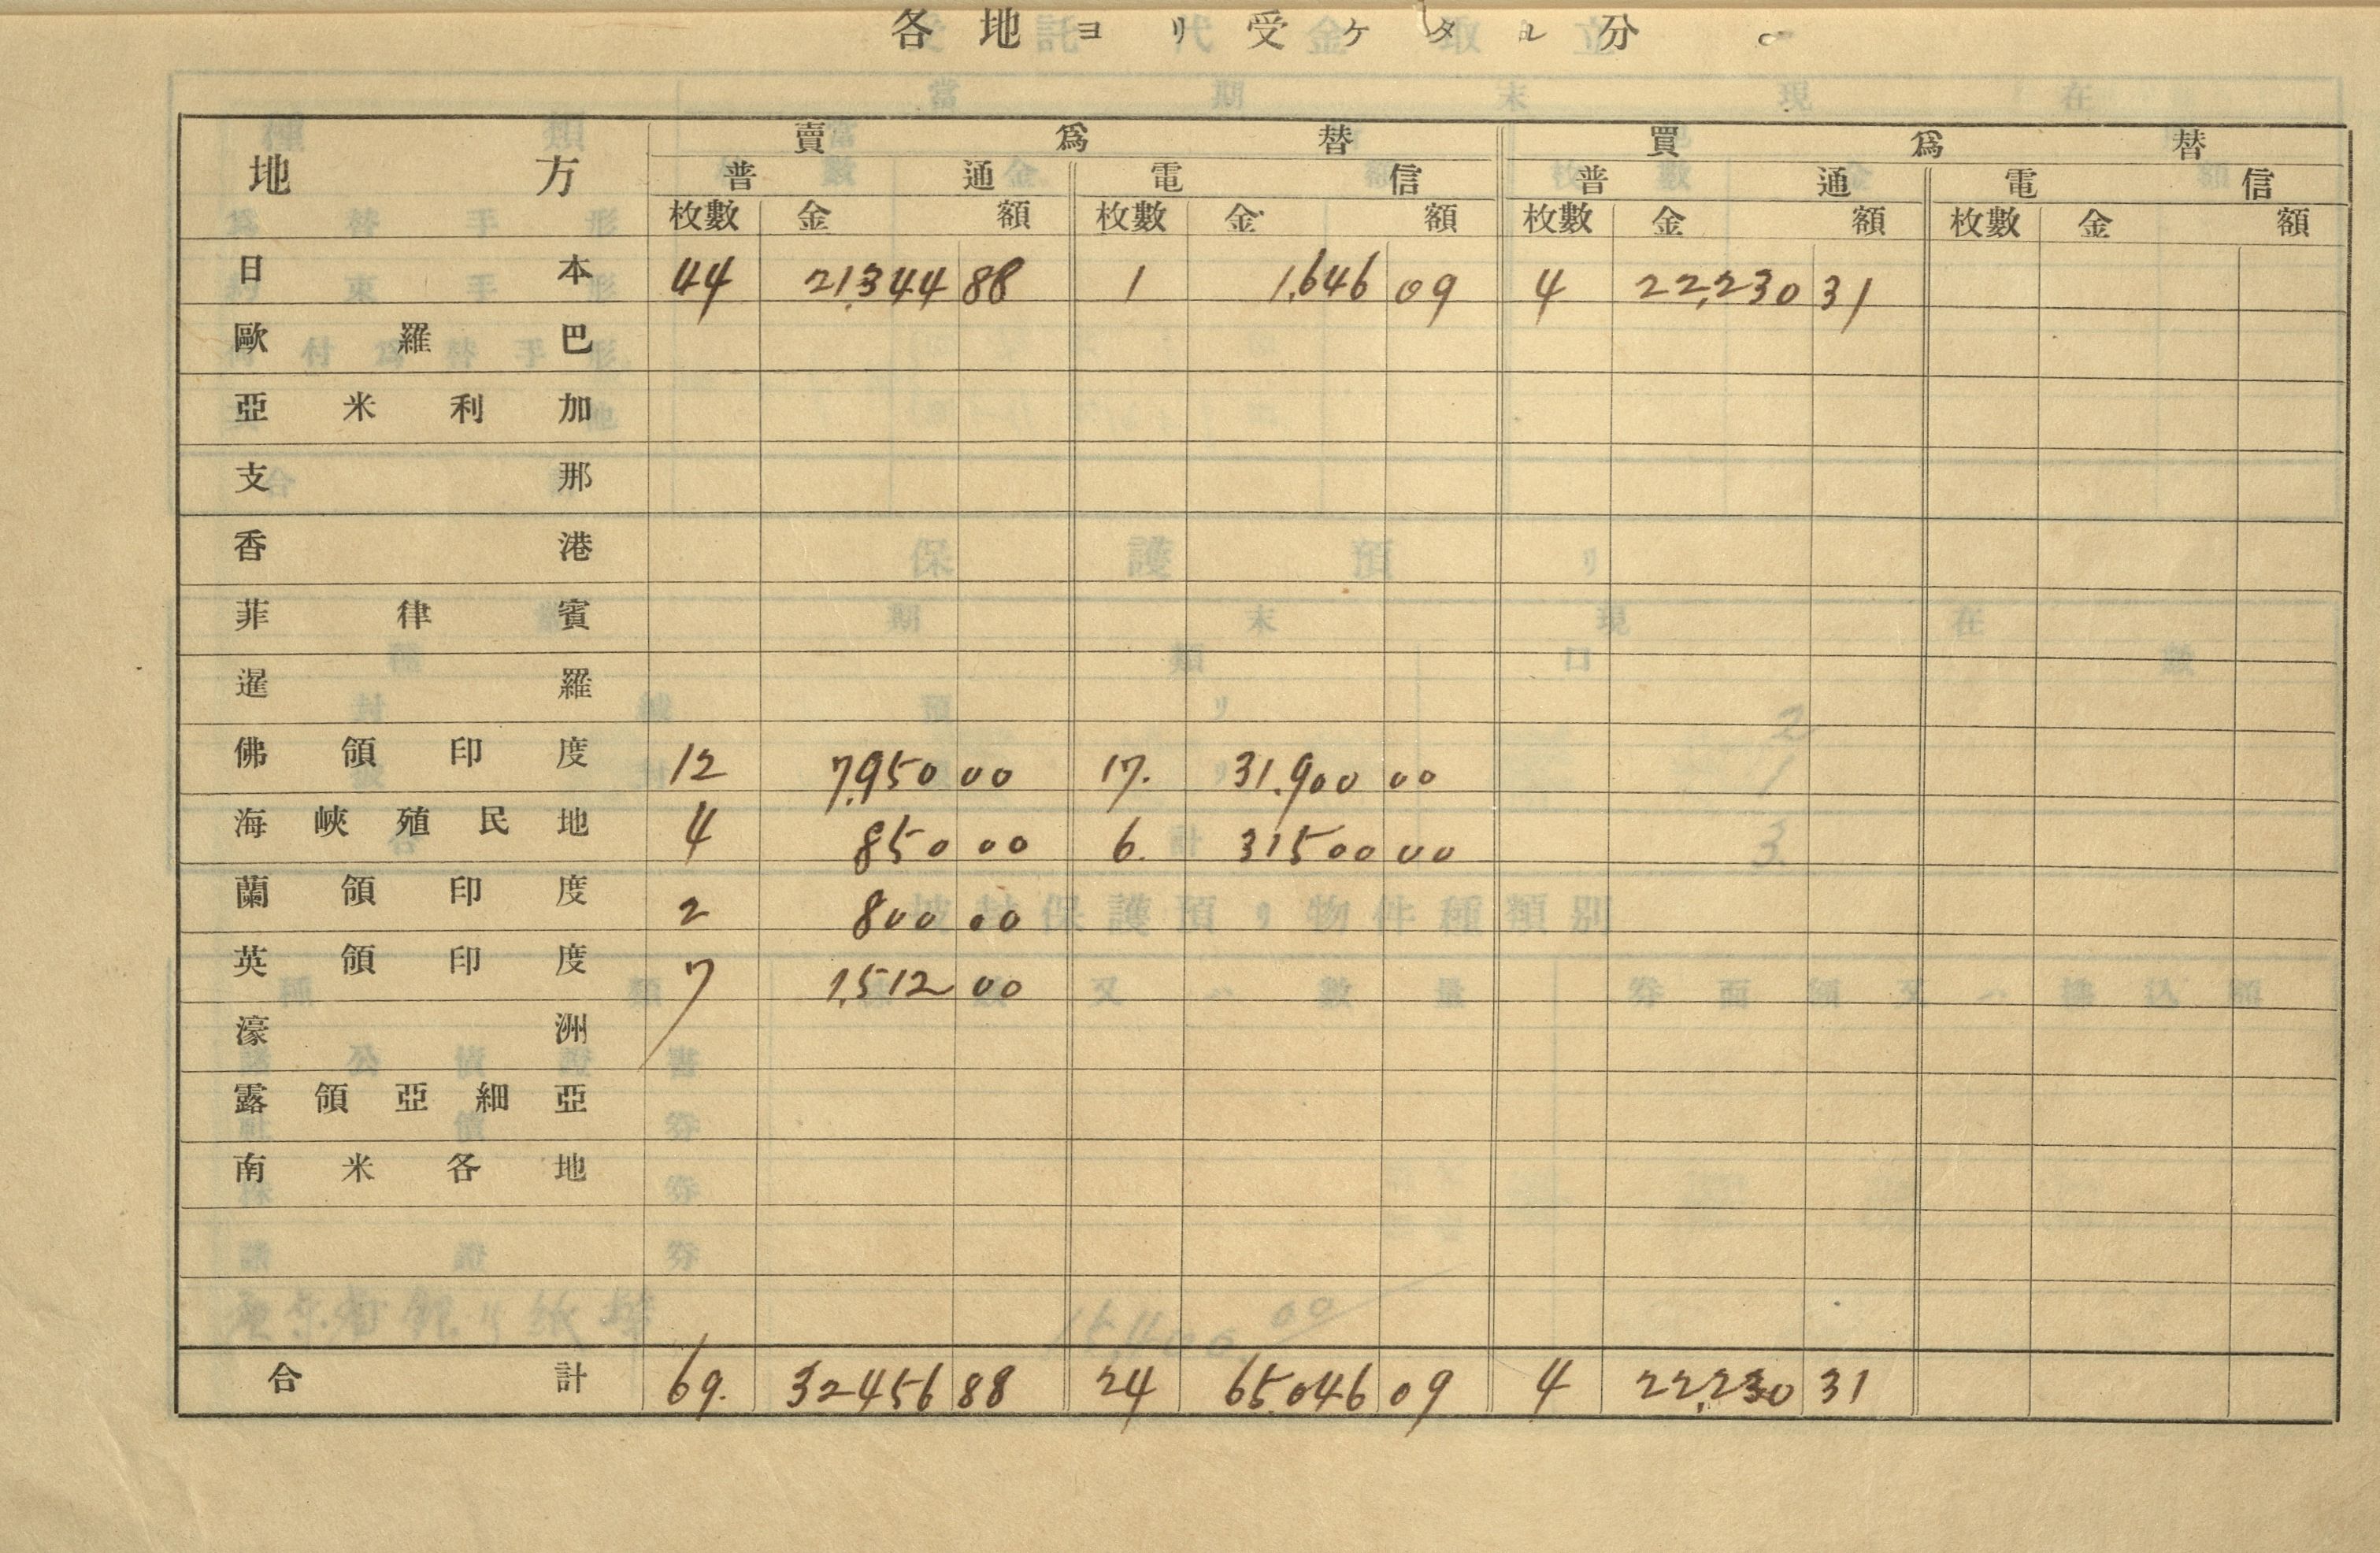 各地ヨリ受ケタル分
地方 賣爲替 買爲替
普通 電信 普通 電信
枚數 金額 枚數 金額 枚數 金額 枚數 金額
日本 44 21,344 88 1 1,646 09 4 22,230 31
歐羅巴
亞米利加
支那
香港
菲律賓
暹羅
佛領印度 12 7,950 00 17. 31.900 00
海峽殖民地 4 850 00 6. 31500 00
蘭領印度 2 800 00
英領印度 7 1,512 00
濠洲
露領亞細亞
南米各地
合計 69. 32456 88 24 65.046 09 4 22,230 31